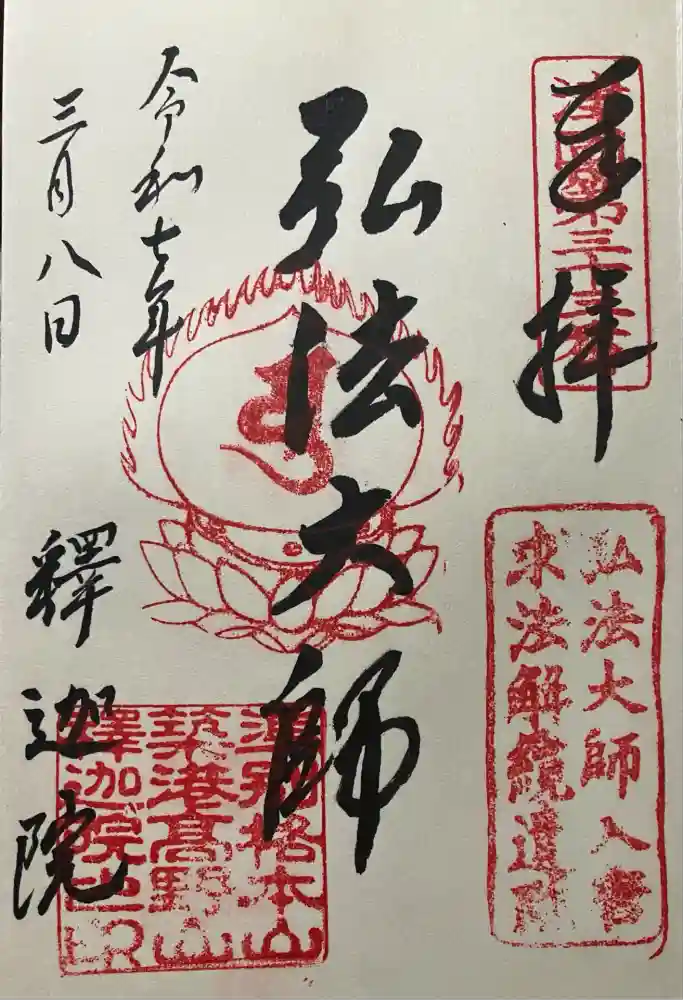 奉拝
弘法大師入唐
求法解纜遺所
弘法大師
準別格本山
築港高野山
釋迦院之印
令和七年
三月八日
釋迦院